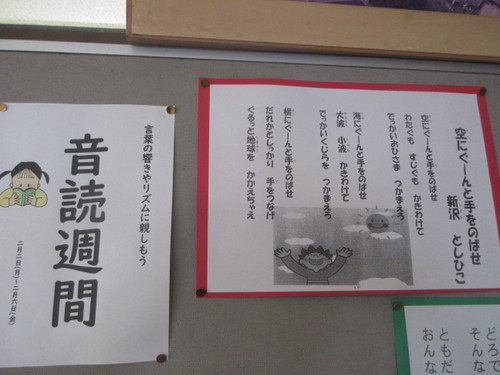 言葉の響きやリズムに親しもう
音読週間
二月二日(月)~二月六日(金)
空にぐーんと手をのばせ
新沢 としひこ
空にぐーんと手をのばせ
わたぐも すじぐも かきわけて
でっかいおひさま つかまえろ
海にぐーんと手をのばせ
大波 小波 かきわけて
でっかいくじらを つかまえろ
横にぐーんと手をのばせ
だれかとしっかり 手をつなげ
ぐるっと地球を かかえちゃえ
どろで
そんな
ともだ
おんな